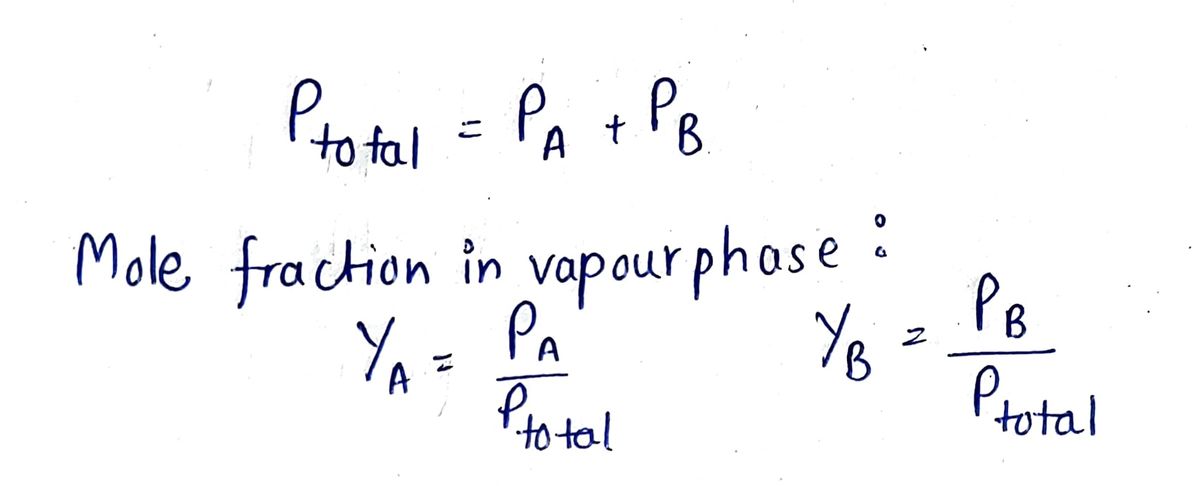 P_total = P_A + P_B
Mole fraction in vapour phase :
Y_A = P_A / P_total    Y_B = P_B / P_total